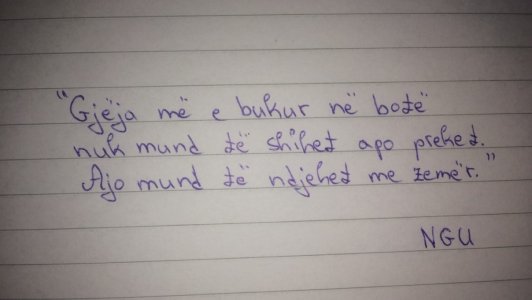 "Gjëja më e bukur në botë
nuk mund të shihet apo preket.
Ajo mund të ndjehet me zemër."
NGU